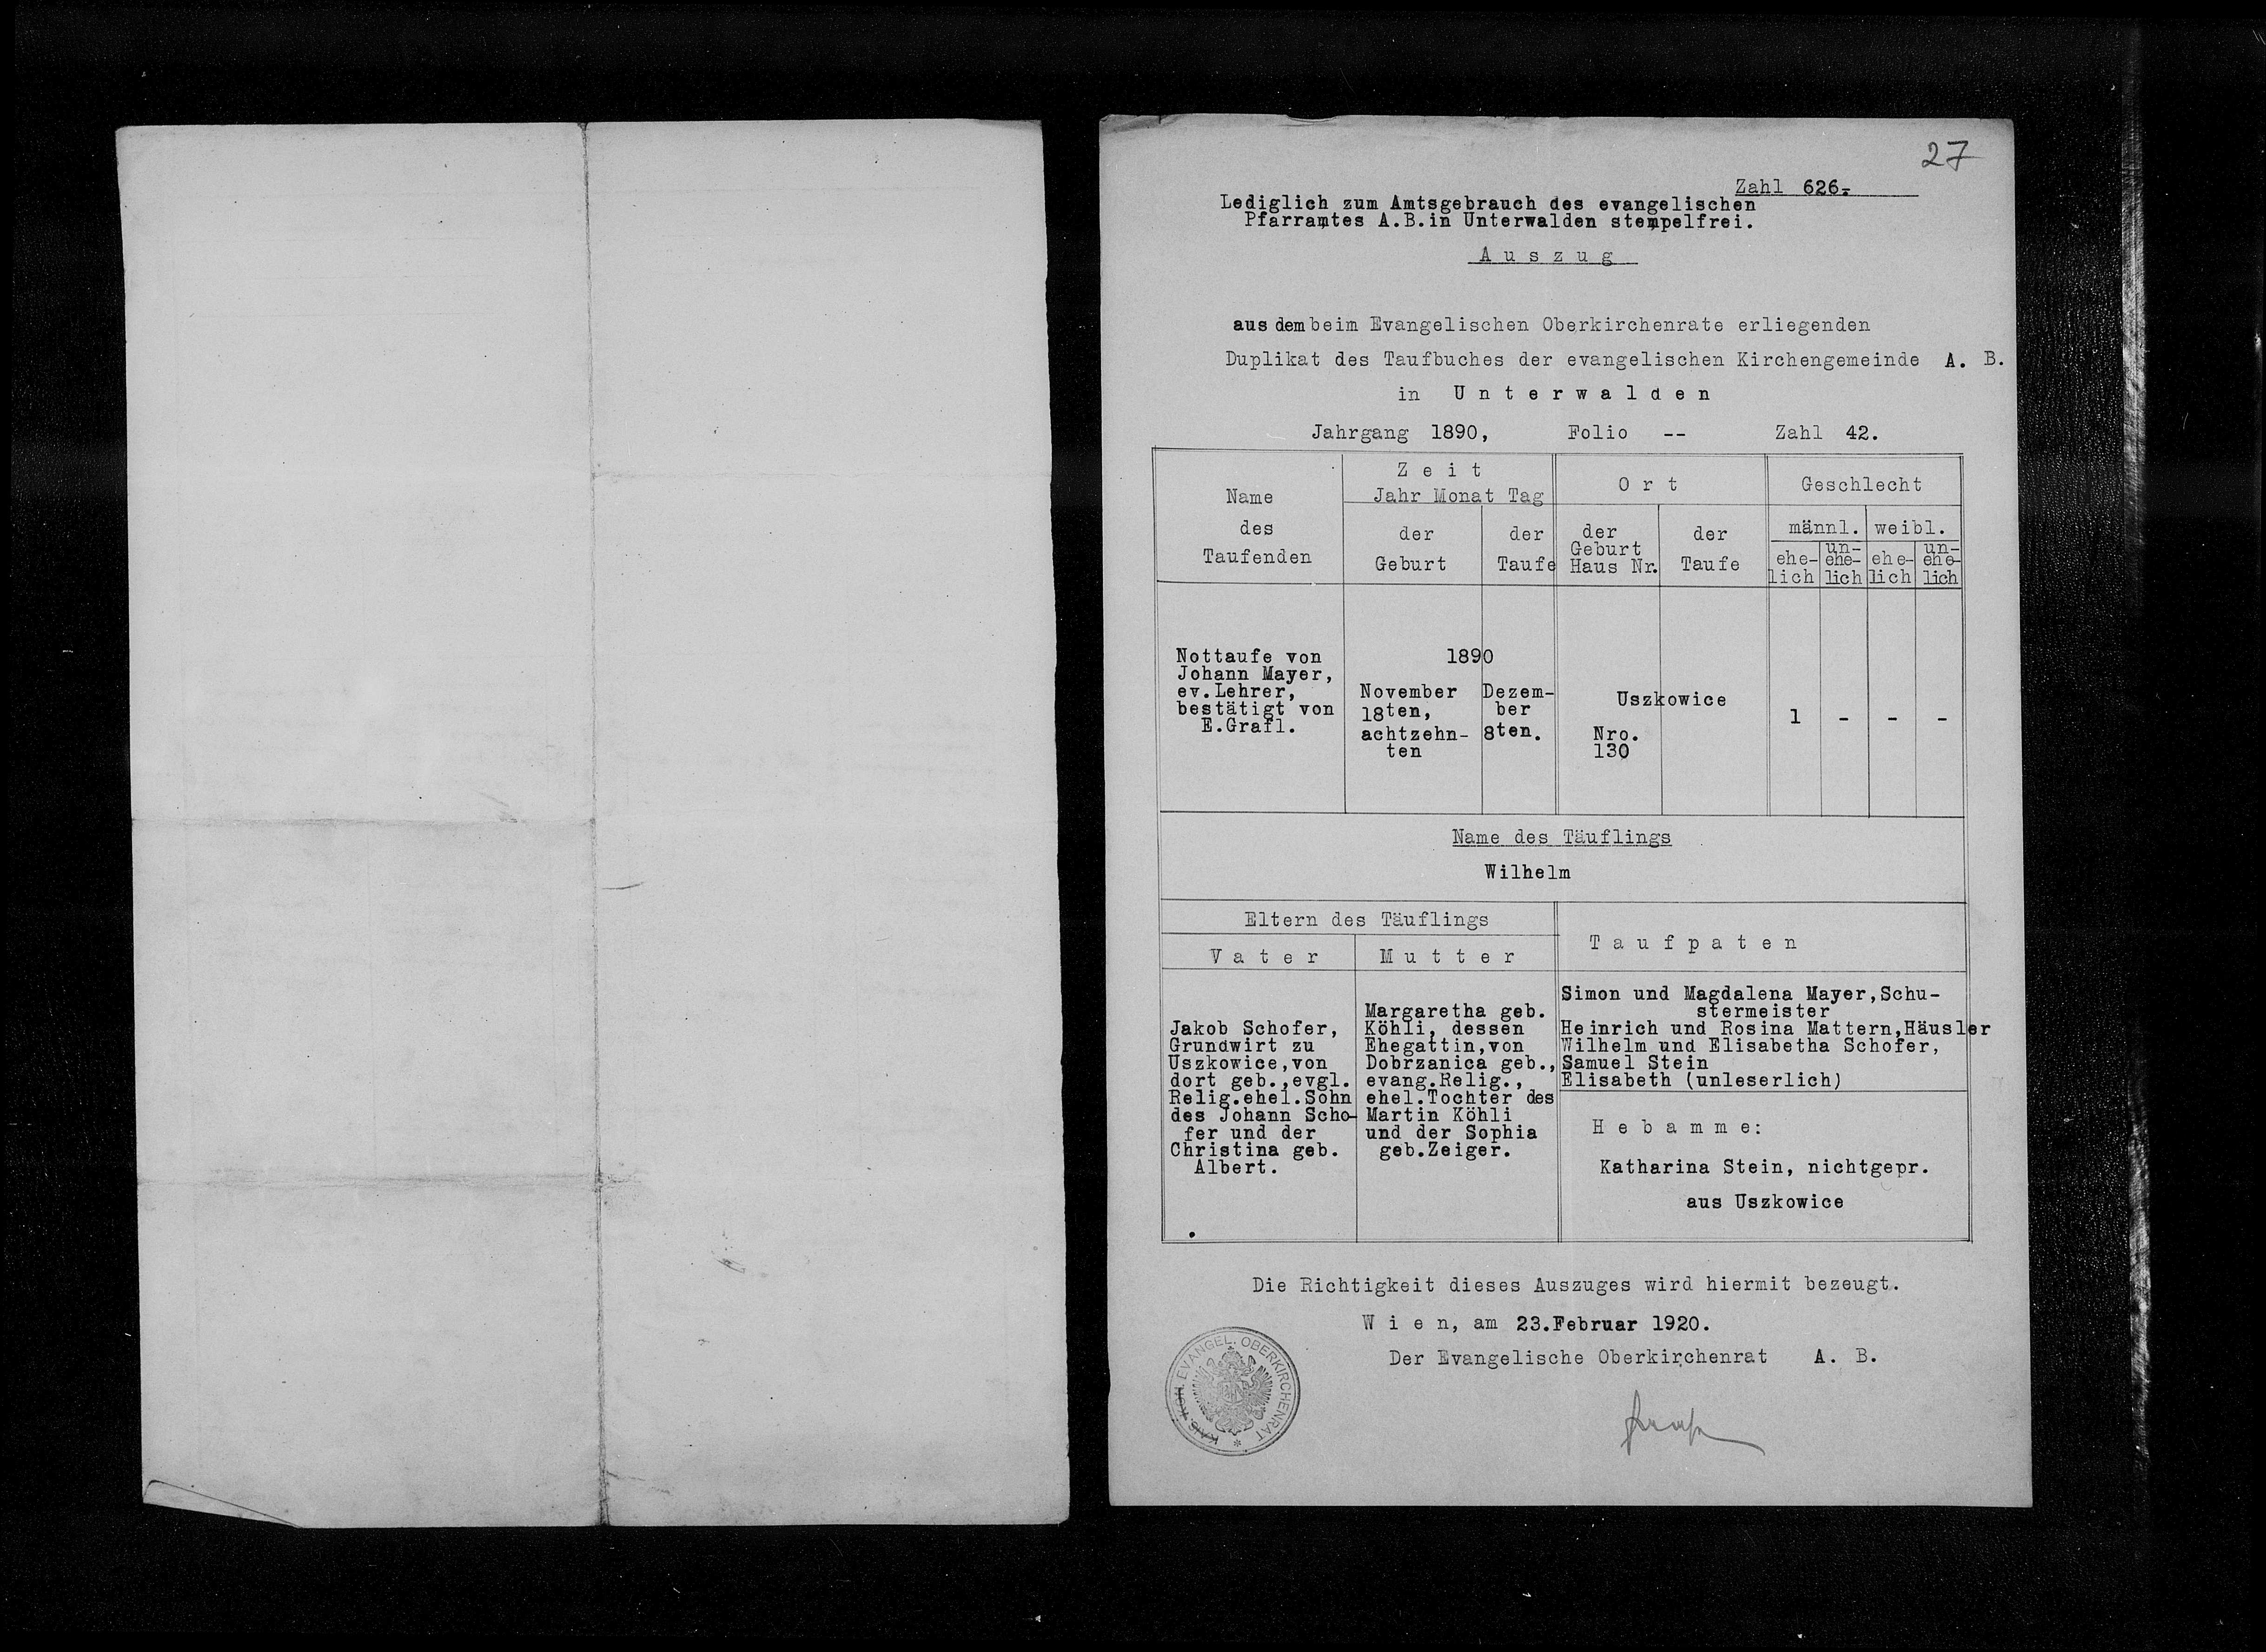 27
Zahl 626.-
Lediglich zum Amtsgebrauch des evangelischen
Pfarramtes A.B.in Unterwalden stempelfrei.
A u s z u g
aus dem beim Evangelischen Oberkirchenrate erliegenden
Duplikat des Taufbuches der evangelischen Kirchengemeinde A. B.
in U n t e r w a l d e n
Jahrgang 1890, Folio -- Zahl 42.
Name
des
Taufenden
Z e i t
Jahr Monat Tag
der
Geburt
der
Taufe
O r t
der
Geburt
Haus Nr.
der
Taufe
Geschlecht
männl. weibl.
ehe-
lich
un-
ehe-
lich
ehe-
lich
un-
ehe-
lich
Nottaufe von
Johann Mayer,
ev.Lehrer,
bestätigt von
E.Grafl.
1890
November
18ten,
achtzehn-
ten
Dezem-
ber
8ten.
Uszkowice
Nro.
130
1 - - -
Name des Täuflings
Wilhelm
Eltern des Täuflings
V a t e r
M u t t e r
T a u f p a t e n
Jakob Schofer,
Grundwirt zu
Uszkowice,von
dort geb.,evgl.
Relig.ehel.Sohn
des Johann Scho-
fer und der
Christina geb.
Albert.
Margaretha geb.
Köhli, dessen
Ehegattin,von
Dobrzanica geb.,
evang.Relig.,
ehel.Tochter des
Martin Köhli
und der Sophia
geb.Zeiger.
Simon und Magdalena Mayer,Schu-
stermeister
Heinrich und Rosina Mattern,Häusler
Wilhelm und Elisabetha Schofer,
Samuel Stein
Elisabeth (unleserlich)
H e b a m m e:
Katharina Stein, nichtgepr.
aus Uszkowice
Die Richtigkeit dieses Auszuges wird hiermit bezeugt.
W i e n, am 23.Februar 1920.
Der Evangelische Oberkirchenrat A. B.
KAIS. KÖN. EVANGEL. OBERKIRCHENRAT